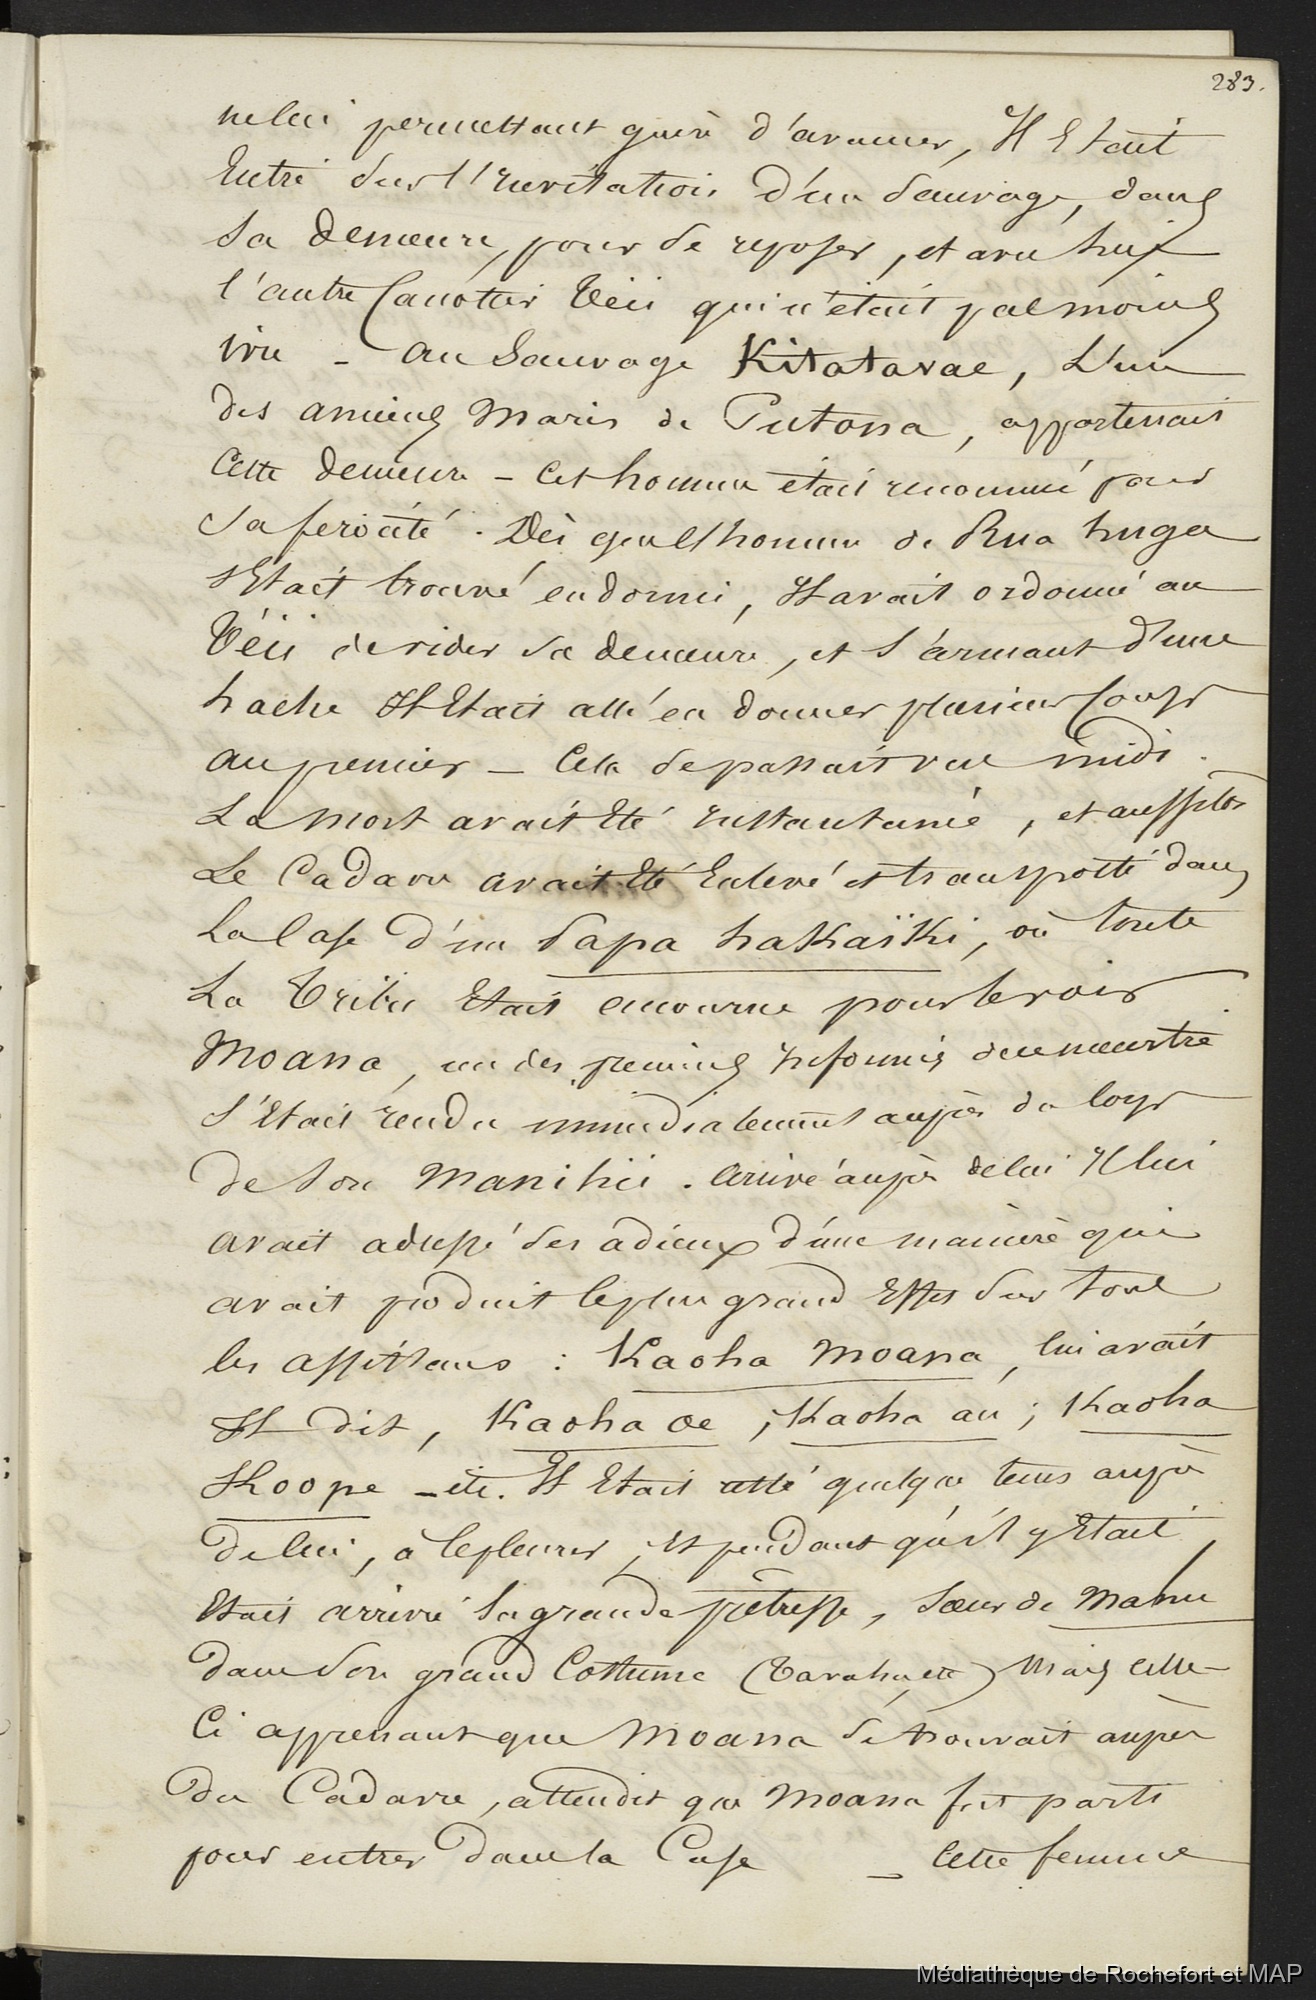 283.
ne lui permettant guère d'avancer, Il Etait
Entré sur l'invitation d'un sauvage, dans
sa demeure, pour se reposer, et avec lui
l'autre Canotier Veii qui n'était pas moins
ivre - au Sauvage Kitatavae, L'un
des anciens Maris de Putona, appartenait
Cette demeure - Cet homme était renommé pour
sa ferocité. Dès que l'homme de Rua huga
s'Etait trouvé endormi, Il avait ordonné au
Véii de vider sa demeure, et s'armant d'une
hache Il Etait allé en donner plusieurs Coups
au premier - Cela se passait vers midi.
La mort avait Eté instantanée, et aussitôt
Le Cadavre avait Eté Enlevé et transporté dans
La Case d'un Papa hakaïki, où toute
La Tribu Etait accourue pour le voir
Moana, un des premiers informés du meurtre
s'Etait rendu immédiatement auprès du Corps
de son Manihii. Arrivé auprès de lui Il lui
avait adressé ses adieux d'une manière qui
avait produit le plus grand Effet sur tous
les assistans : Kaoha Moana, lui avait
Il dit, Kaoha oe ; Kaoha au ; Kaoha
Hoope - etc. Il Etait resté quelque tems auprès
de lui, à le pleurer, et pendant qu'il y Etait,
Etait arrivé la grande prêtresse, Sœur de Mahu
dans son grand Costume (Tavaha, etc) Mais celle-
Ci apprenant que Moana se trouvait auprès
du Cadavre, attendit que Moana fut parti
pour entrer dans la Case - Cette femme
Médiathèque de Rochefort et MAP